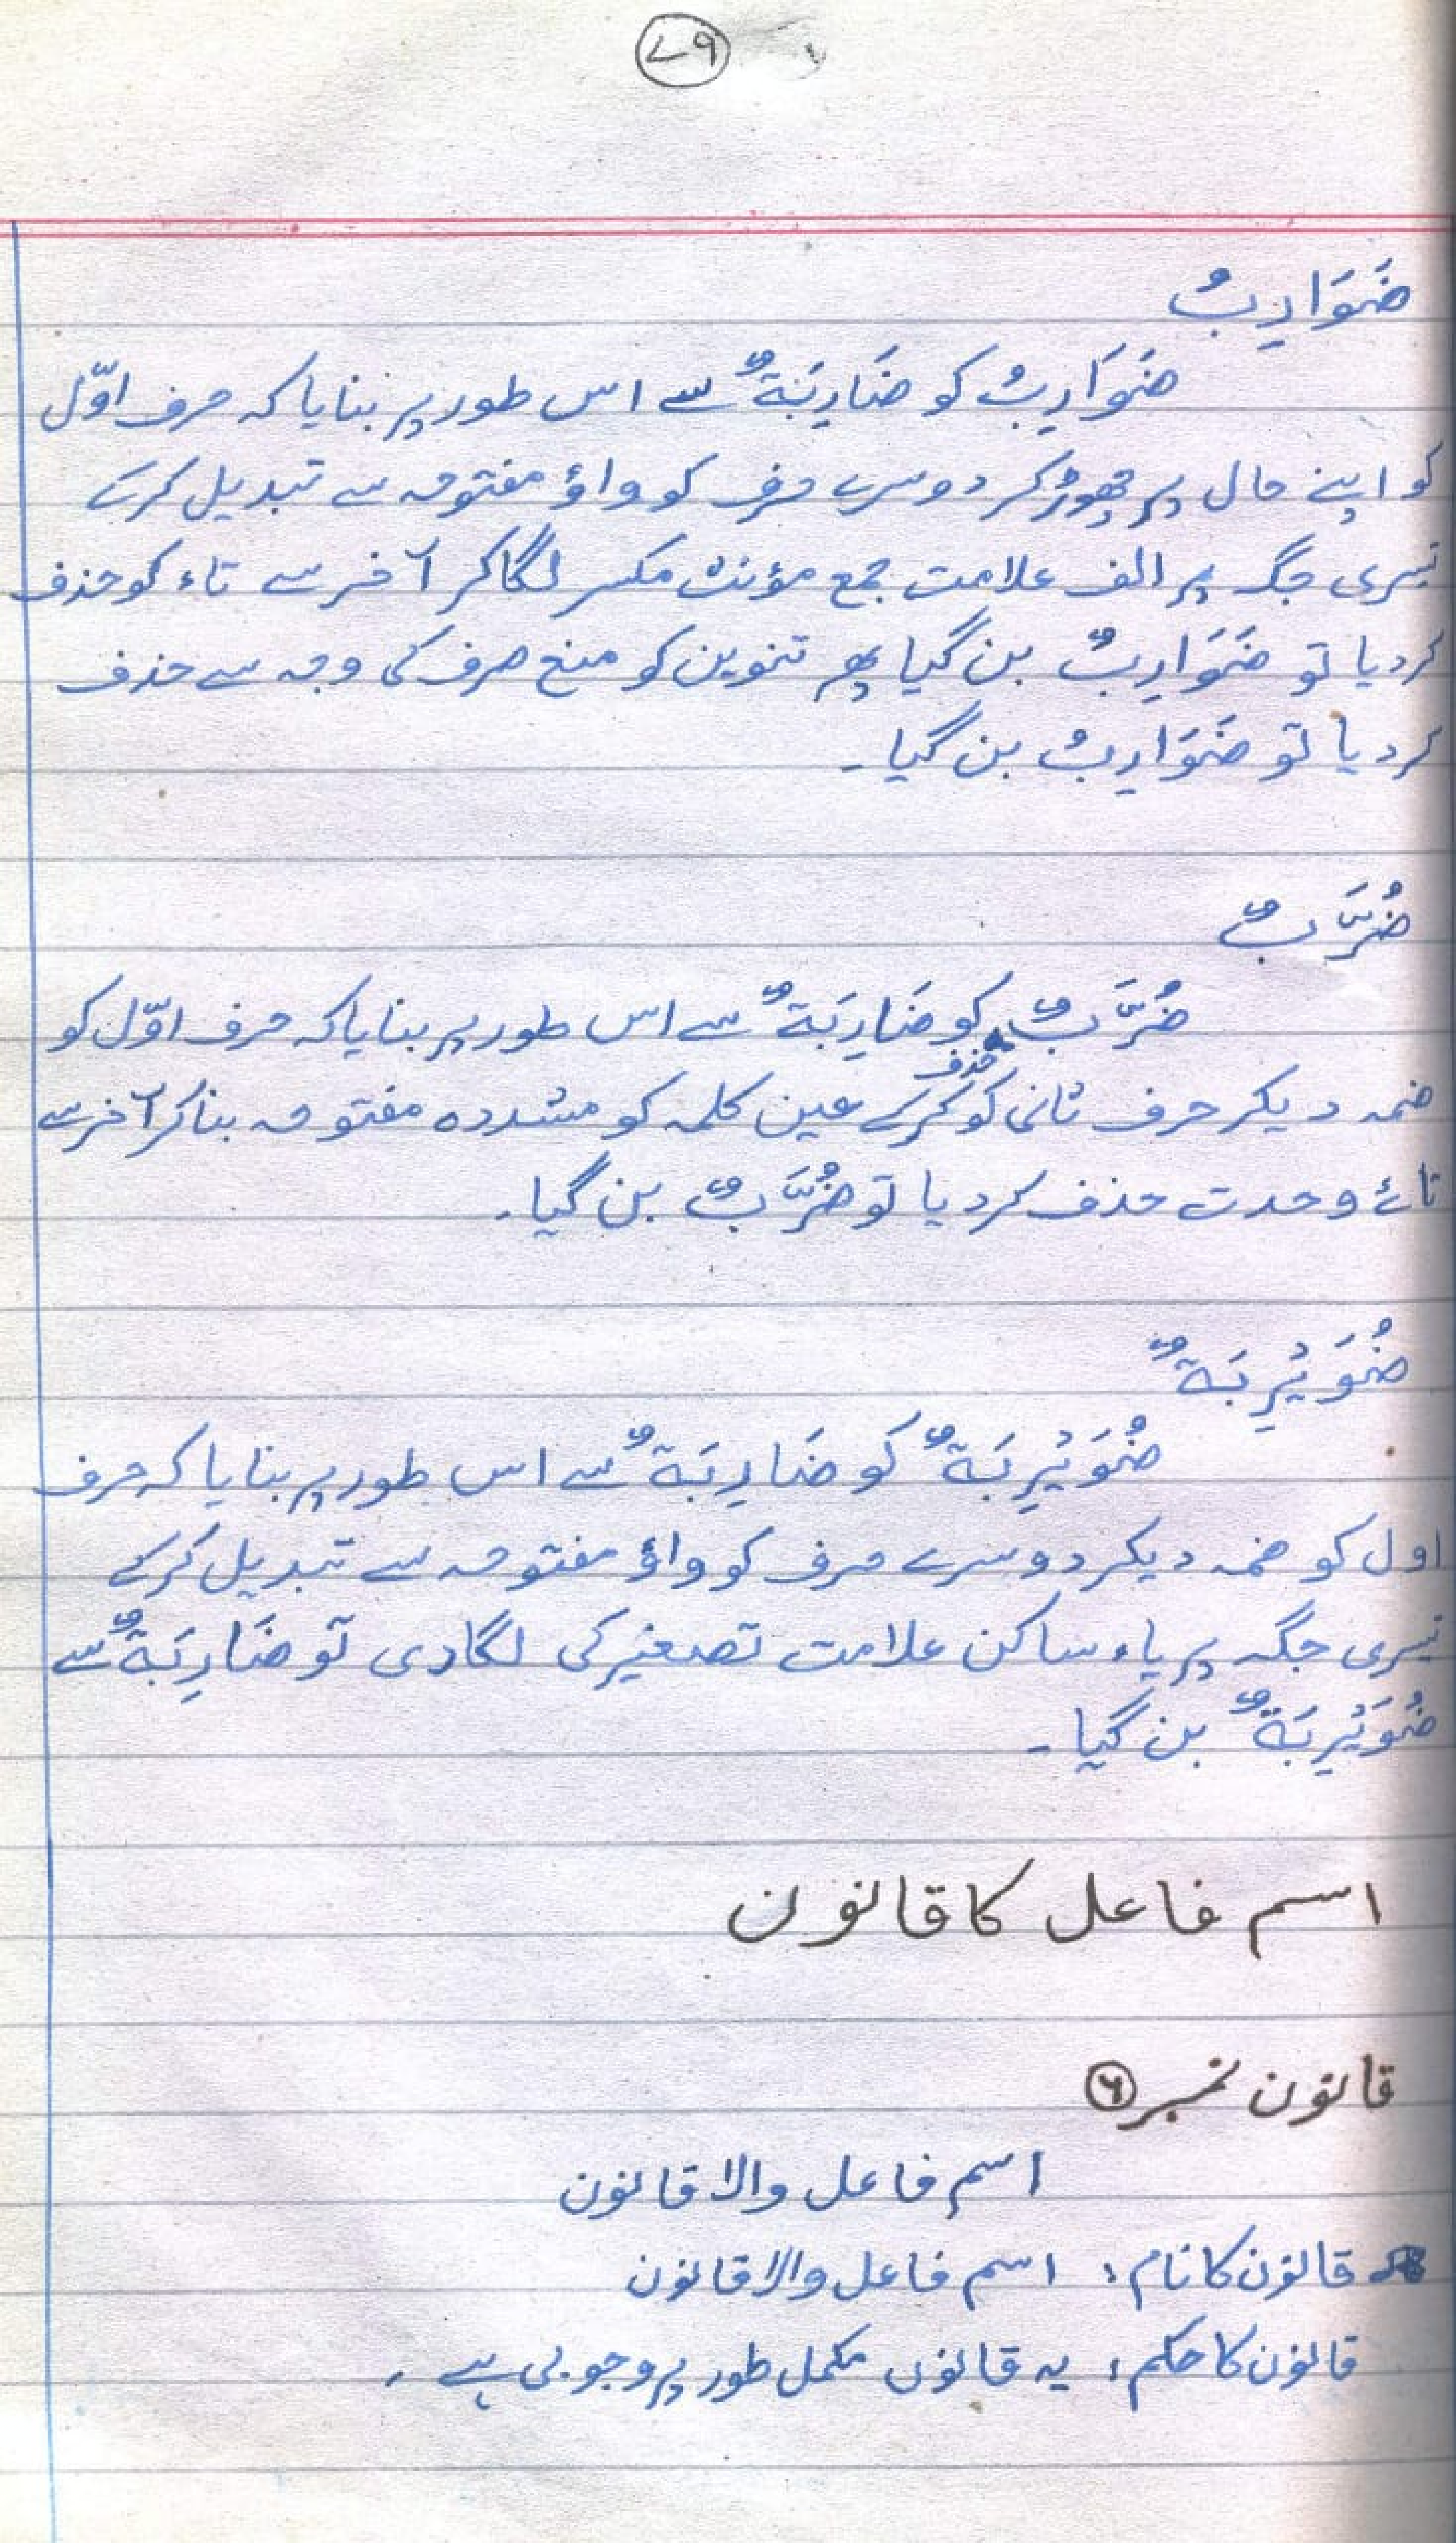 ۷۹
ضَوَارِبُ
ضَوَارِبُ کو ضَارِبَةٌ سے اس طور پر بنایا کہ حرف اوّل
کو اپنے حال پر چھوڑ کر دوسرے حرف کو واؤ مفتوحہ سے تبدیل کرکے
تیسری جگہ پر الف علامت جمع مؤنث مکسر لگا کر آخر سے تاء کو حذف
کردیا تو ضَوَارِبٌ بن گیا پھر تنوین کو منع صرف کی وجہ سے حذف
کردیا تو ضَوَارِبُ بن گیا۔
ضُرَّبٌ
ضُرَّبٌ کو ضَارِبَةٌ سے اس طور پر بنایا کہ حرف اوّل کو
ضمہ دیکر حرف ثانی کو حذف کرکے عین کلمہ کو مشددہ مفتوحہ بنا کر آخر سے
تائے وحدت حذف کردیا تو ضُرَّبٌ بن گیا۔
ضُوَيْرِبَةٌ
ضُوَيْرِبَةٌ کو ضَارِبَةٌ سے اس طور پر بنایا کہ حرف
اول کو ضمہ دیکر دوسرے حرف کو واؤ مفتوحہ سے تبدیل کرکے
تیسری جگہ پر یاء ساکن علامت تصغیر کی لگادی تو ضَارِبَةٌ سے
ضُوَيْرِبَةٌ بن گیا۔
اسم فاعل کا قانون
قانون نمبر ۶
اسم فاعل والا قانون
قانون کا نام: اسم فاعل والا قانون
قانون کا حکم: یہ قانون مکمل طور پر وجوبی ہے۔